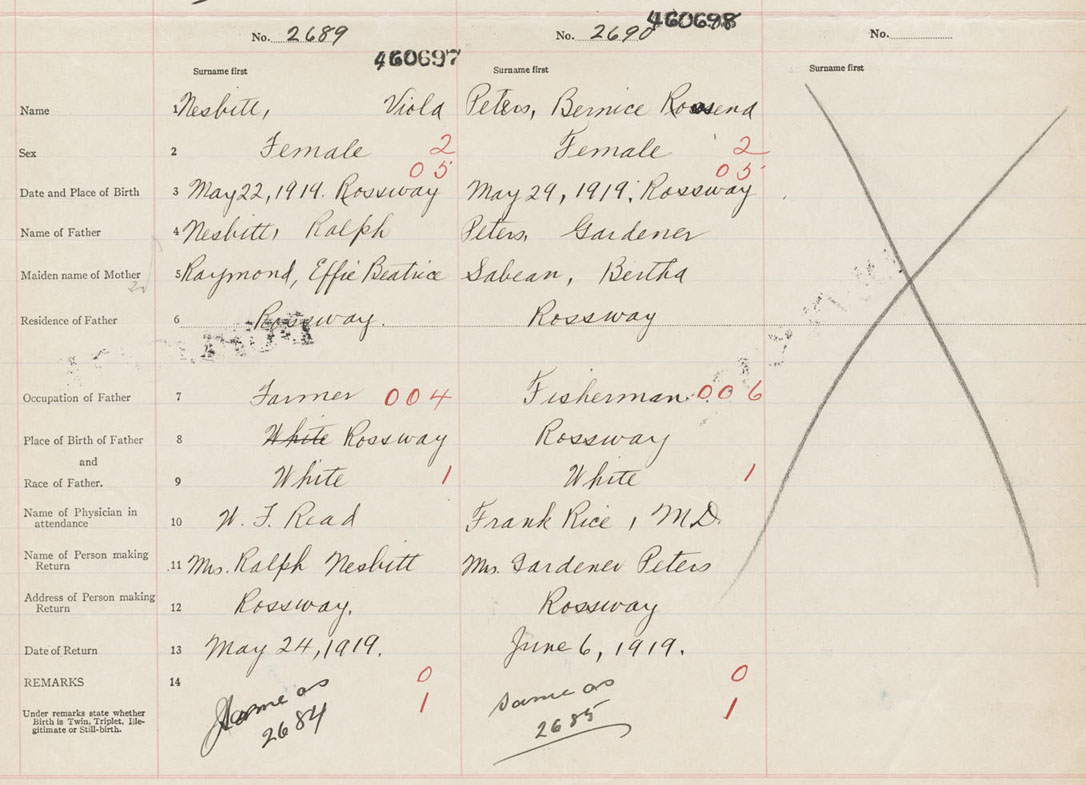 No. 2689
460697
No. 2690
460698
No.
Surname first
Surname first
Surname first
Name 1 Nesbitt, Viola Peters, Bernice
Sex 2 Female 2 Female 2
05 05
Date and Place of Birth 3 May 22, 1919. Rossway May 29, 1919, Rossway
Name of Father 4 Nesbitt, Ralph Peters, Gardener
Maiden name of Mother 5 Raymond, Effie Beatrice Sabean, Bertha
Residence of Father 6 Rossway. Rossway
Occupation of Father 7 Farmer 004 Fisherman 006
Place of Birth of Father 8 White Rossway Rossway
and
Race of Father. 9 White 1 White 1
Name of Physician in
attendance 10 W. F. Read Frank Rice, M.D.
Name of Person making
Return 11 Mrs. Ralph Nesbitt Mrs. Gardener Peters
Address of Person making
Return 12 Rossway. Rossway
Date of Return 13 May 24, 1919. June 6, 1919.
REMARKS 14 0 0
Under remarks state whether
Birth is Twin, Triplet, Ille-
gitimate or Still-birth.
Same as
2684
1
Same as
2685
1